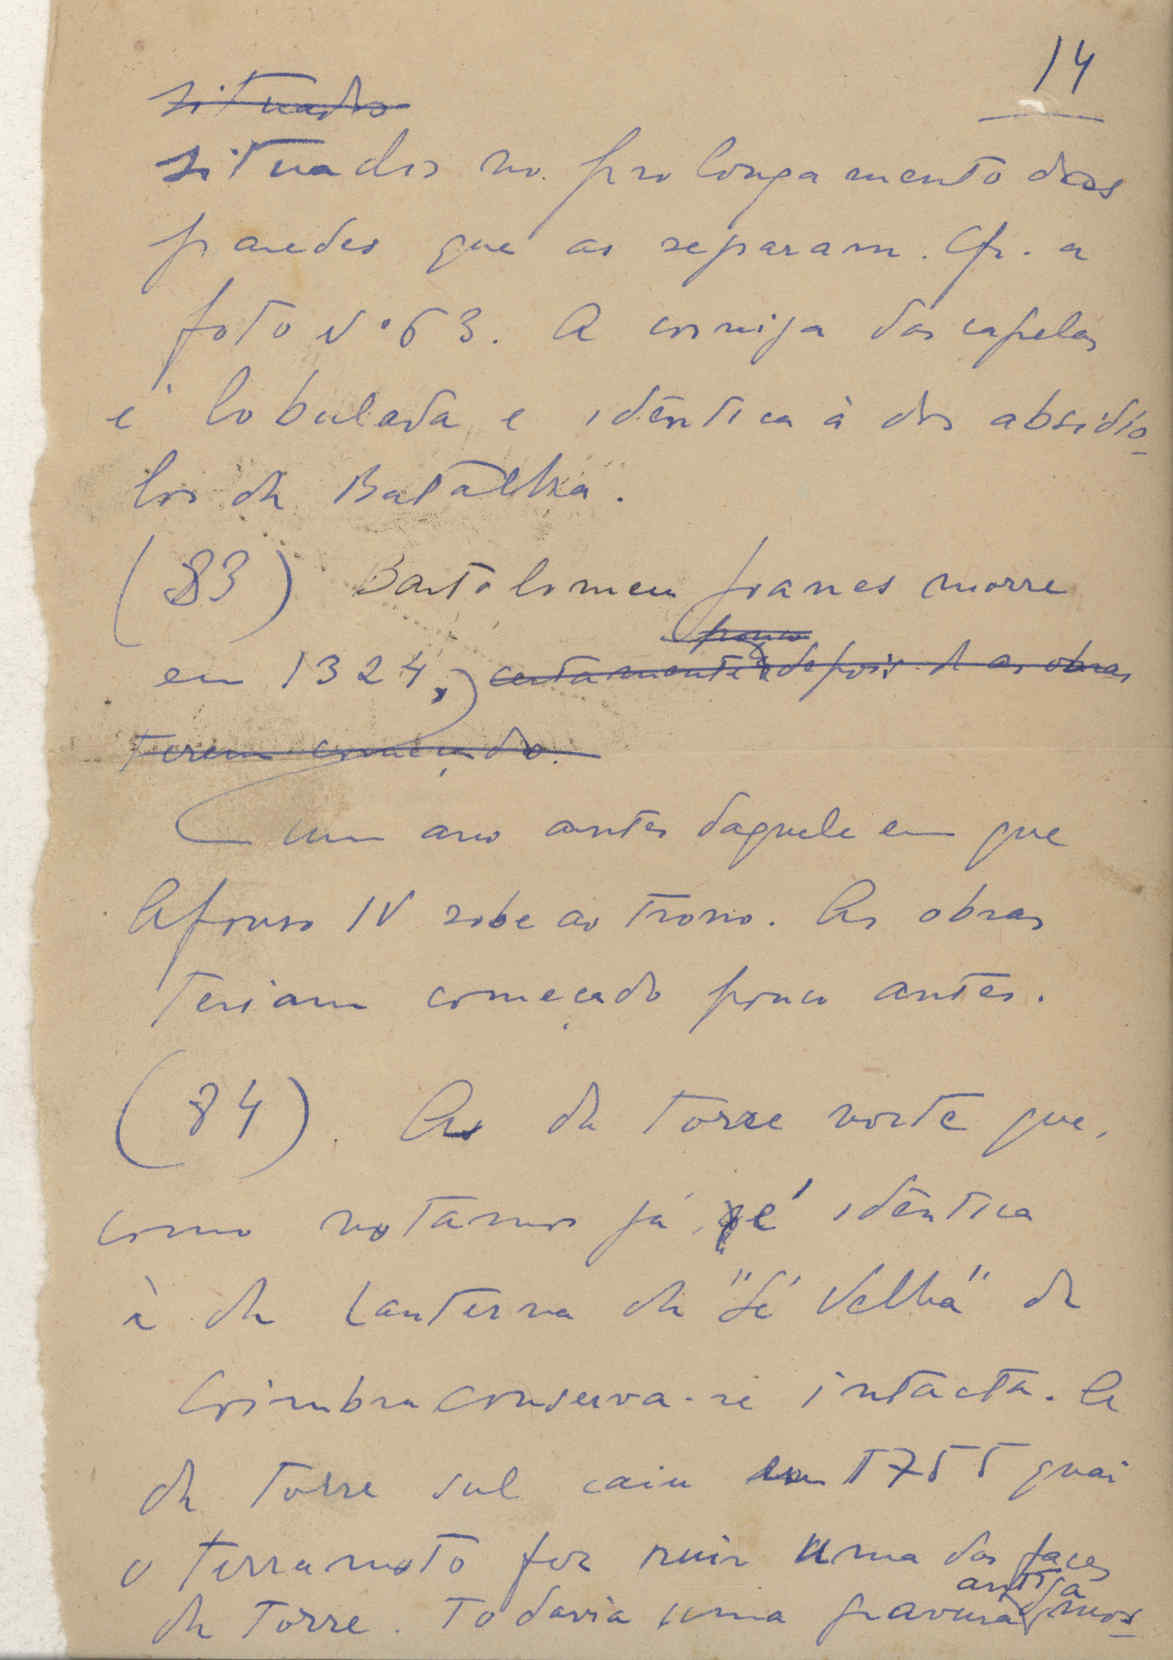 14
situados
situados no prolongamento das
paredes que as separam. Cfr. a
foto Nº 63. A cornija das capelas
é lobulada e idêntica à dos absidío-
los da Batalha.
(83) Bartolomeu Joanes morre
pouco
em 1324, certamente depois de as obras
terem começado.
um ano antes daquele em que
Afonso IV sobe ao trono. As obras
teriam começado pouco antes.
(84). A da torre norte que,
como notamos já, é idêntica
à da lanterna da "Sé Velha" de
Coimbra conserva-se intacta. A
da torre sul caiu em 1755 quai
o terramoto fez ruir uma das faces
antiga
da torre. Todavia uma gravura mos-